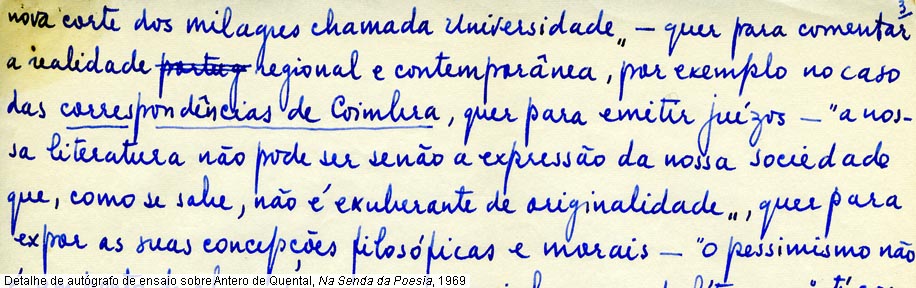 3
nova corte dos milagres chamada Universidade" — quer para comentar
a realidade portug regional e contemporânea, por exemplo no caso
das correspondências de Coimbra, quer para emitir juízos — "a nos-
sa literatura não pode ser senão a expressão da nossa sociedade
que, como se sabe, não é exuberante de originalidade", quer para
expor as suas concepções filosóficas e morais — "O pessimismo não
Detalhe de autógrafo de ensaio sobre Antero de Quental, Na Senda da Poesia, 1969